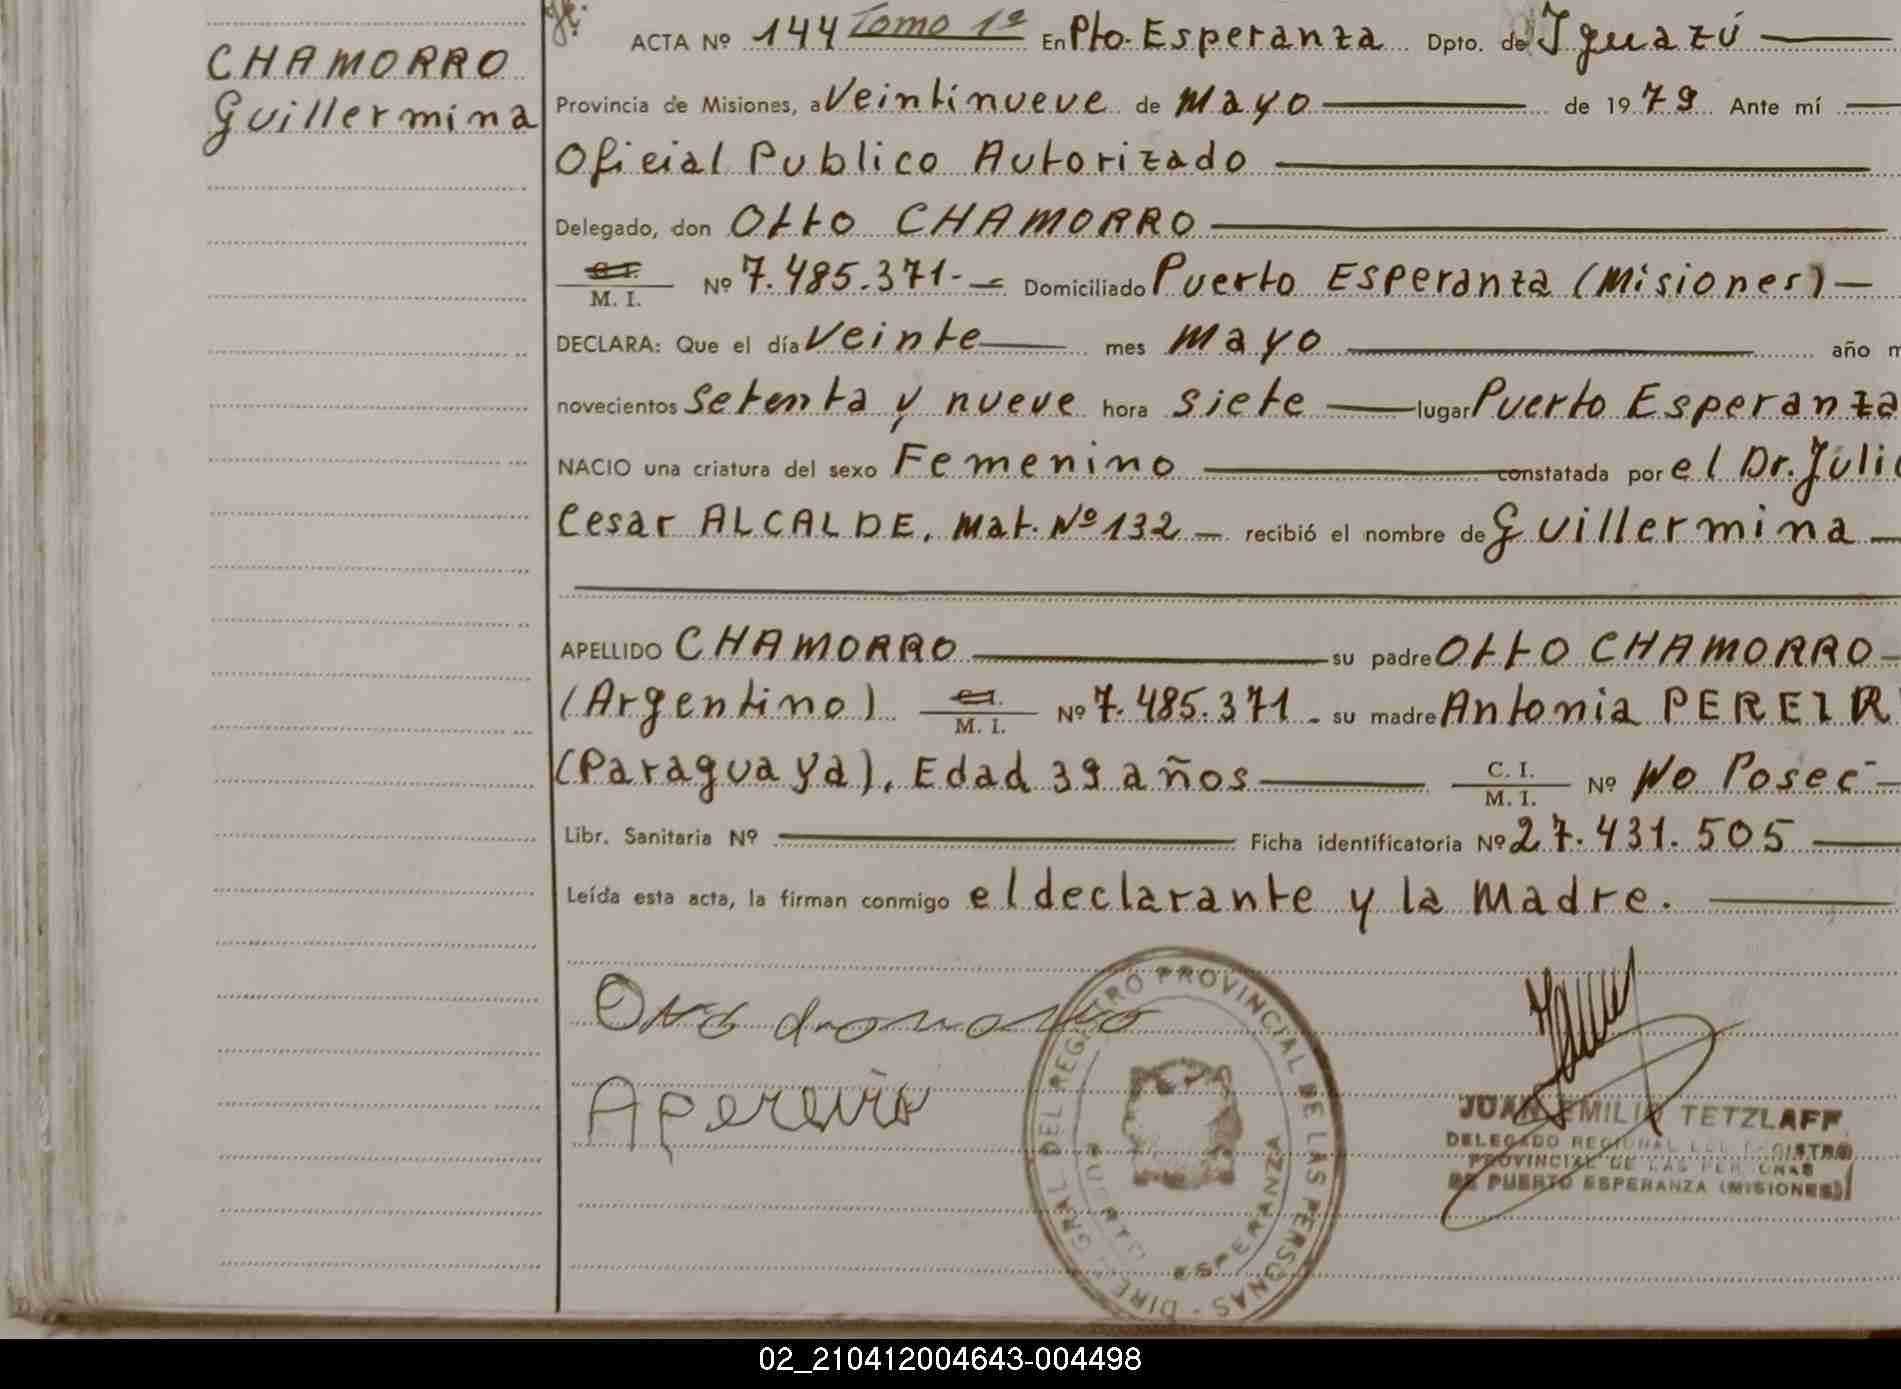 CHAMORRO
Guillermina
ACTA Nº 144 Tomo 1º En Pto. Esperanza Dpto. de Iguazú
Provincia de Misiones, a Veintinueve de Mayo de 1979 Ante mí
Oficial Publico Autorizado
Delegado, don Otto CHAMORRO
C. I.
M. I. Nº 7.485.371- Domiciliado Puerto Esperanza (Misiones)
DECLARA: Que el día Veinte mes Mayo año
novecientos Setenta y nueve hora siete lugar Puerto Esperanza
NACIO una criatura del sexo Femenino constatada por el Dr. Julio
Cesar ALCALDE, Mat. Nº 132 recibió el nombre de Guillermina
APELLIDO CHAMORRO su padre Otto CHAMORRO
(Argentino) C. I. M. I. Nº 7.485.371 - su madre Antonia PEREIR
(Paraguaya), Edad 39 años C. I. M. I. Nº No Posee
Libr. Sanitaria Nº Ficha identificatoria Nº 27.431.505
Leída esta acta, la firman conmigo el declarante y la Madre.
APereira
DIRE. GRAL DEL REGISTRO PROVINCIAL DE LAS PERSONAS
PUERTO ESPERANZA
JUAN EMILIO TETZLAFF
DELEGADO REGIONAL DEL REGISTRO
PROVINCIAL DE LAS PERSONAS
DE PUERTO ESPERANZA (MISIONES)
02_210412004643-004498